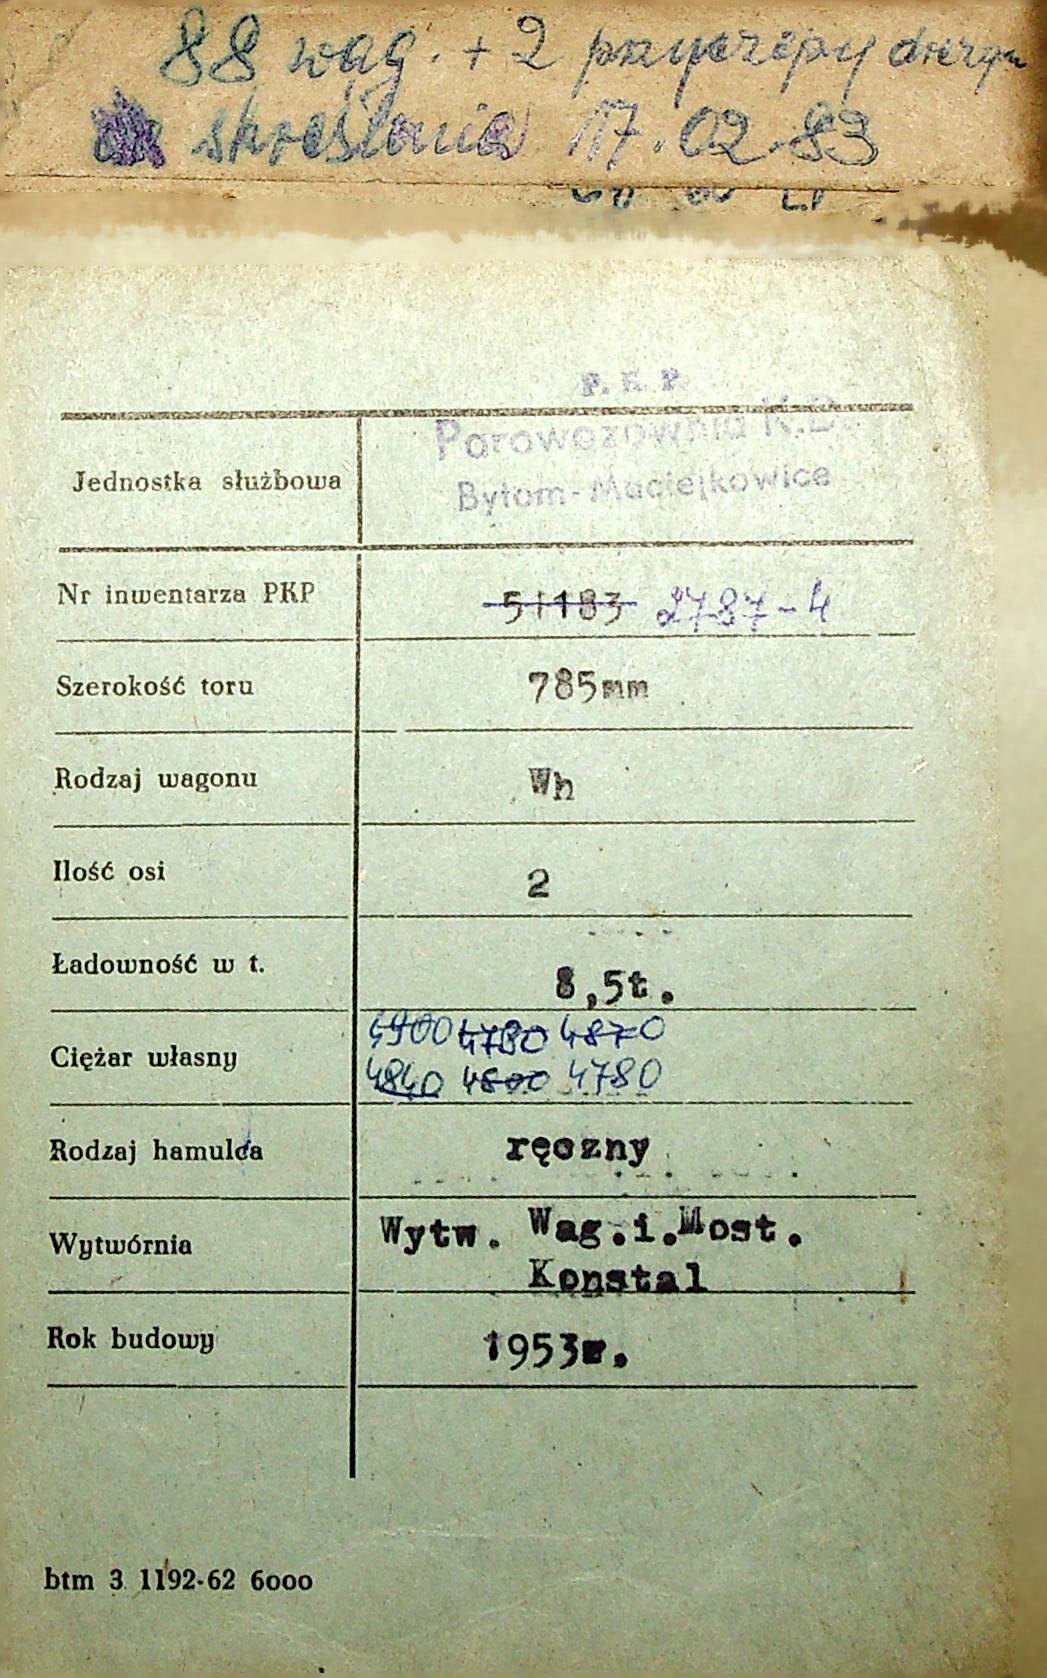 88 wag. + 2 przyczepy drezyn
skreślenia 17.02.83
P. K. P.
Parowozownia K.D.
Bytom-Maciejkowice
Jednostka służbowa
Nr inwentarza PKP 51183 2787-4
Szerokość toru 785mm
Rodzaj wagonu Wh
Ilość osi 2
Ładowność w t. 8,5t.
4900 4780 4870
Ciężar własny
4840 4800 4780
Rodzaj hamulca ręczny
Wytwórnia Wytw. Wag.i.Most.
Konstal
Rok budowy 1953r.
btm 3 1192-62 6000